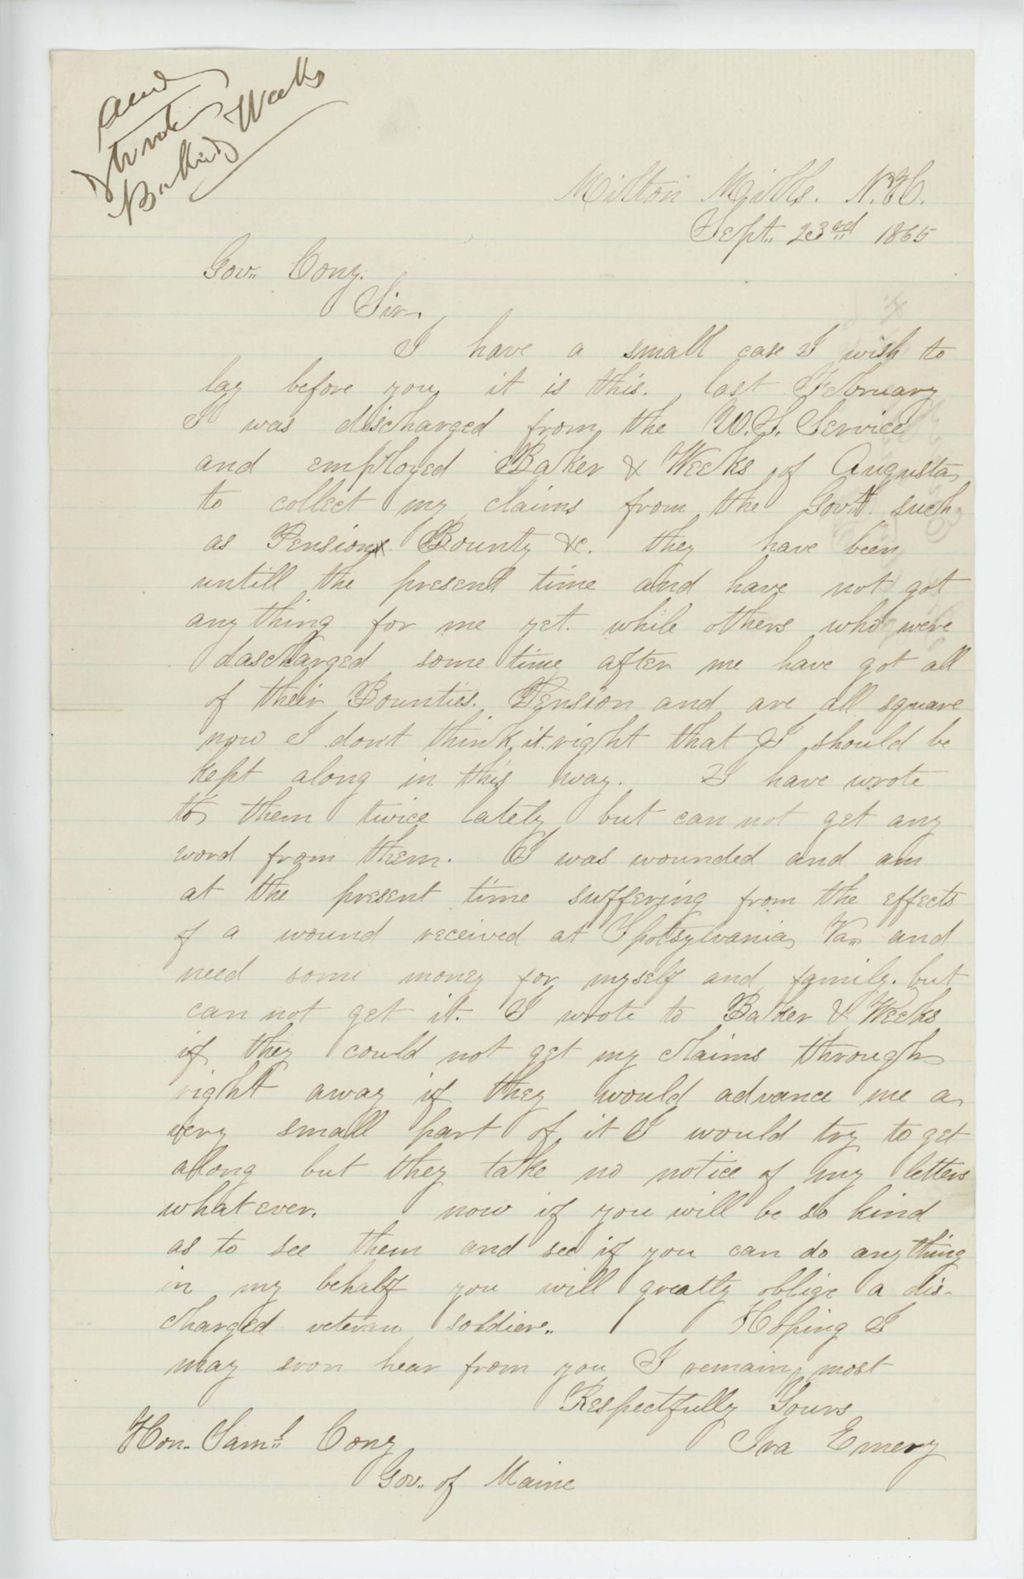 and
Baker & Weeks
Milton Mills. N.H.
Sept. 23rd 1865
Gov. Cony.
Sir.
I have a small case I wish to
lay before you, it is this. last February
I was discharged from the U.S. Service
and employed Baker & Weeks of Augusta
to collect my claims from the Govt. such
as Pension Bounty &c. they have been
untill the present time and have not got
any thing for me yet. while others who were
dascharged some time after me have got all
of their Bounties. Pension and are all square
now I dont think it right that I should be
kept along in this way. I have wrote
to them twice lately but can not get any
word from them. I was wounded and am
at the present time suffering from the effects
of a wound received at Spotsylvania, Va. and
need some money for myself and family. but
can not get it. I wrote to Baker & Weeks
if they could not get my claims through
right away if they would advance me a
very small part of it I would try to get
along but they take no notice of my letters
whatever. now if you will be so kind
as to see them and see if you can do anything
in my behalf you will greatly oblige a dis-
charged veteran soldier. Hoping I
may soon hear from you I remain, most
Respectfully Yours
Ira Emery
Hon. Saml. Cony
Gov. of Maine